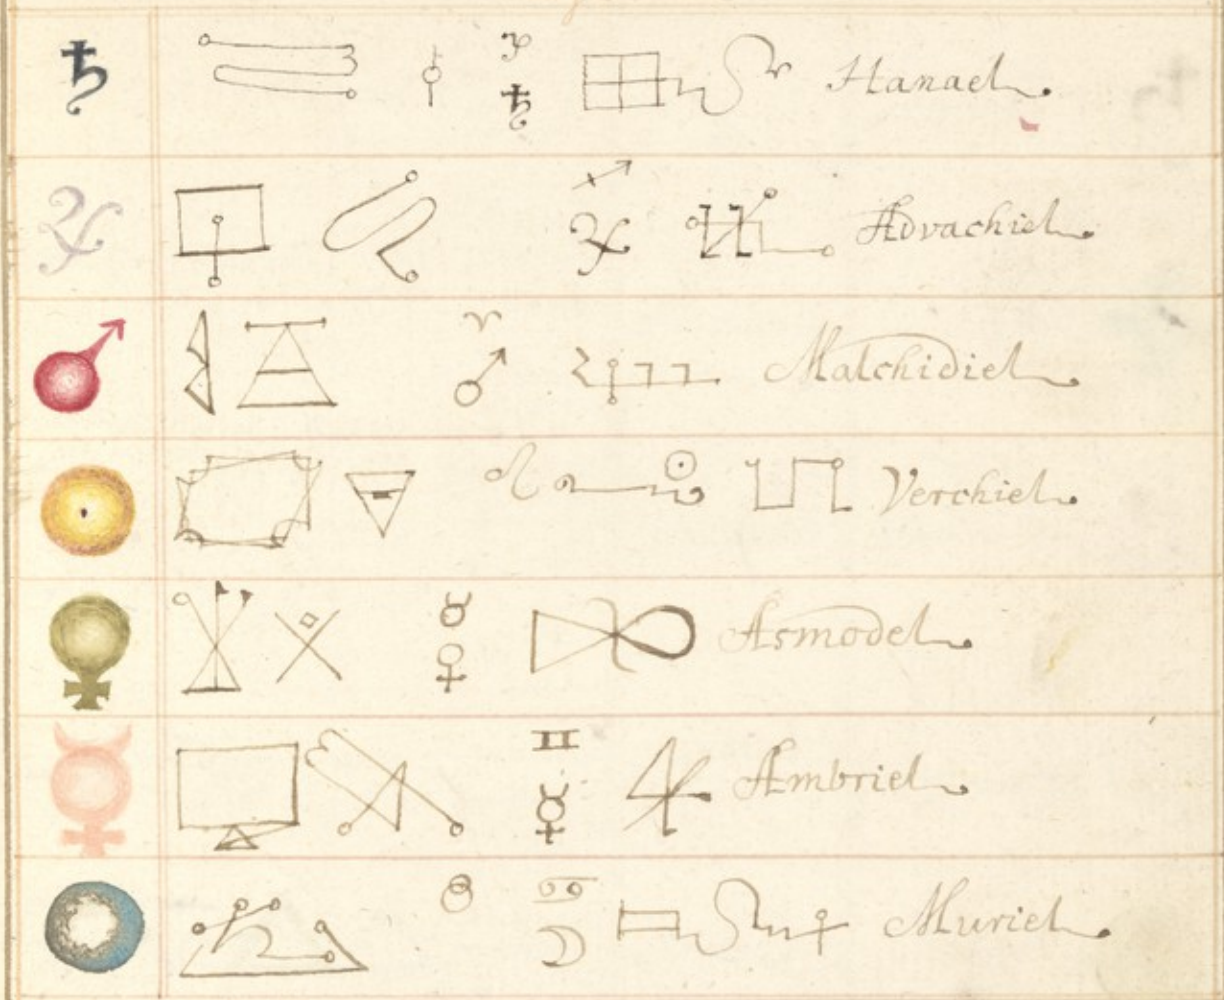 ♄ ♑ ♄ Hanael
♃ ♐ ♃ Advachiel
♂ ♈ ♂ Malchidiel
☉ ♌ ☉ Verchiel
♀ ♉ ♀ Asmodel
☿ ♊ ☿ Ambriel
♋ ☽ Muriel